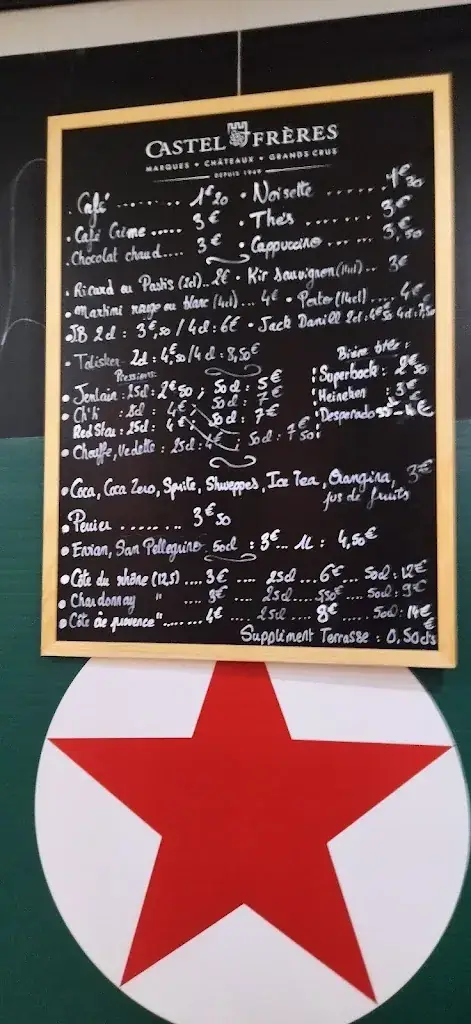 CASTEL FRÈRES
MARQUES • CHÂTEAUX • GRANDS CRUS
DEPUIS 1949
. Café ......... 1€20 • Noisette ...... 1€30
• Café Crème ..... 3€ • Thés ....... 3€
. Chocolat chaud.... 3€ • Cappuccino ... ... 3,50
• Ricard ou Pastis (2cl).. 2€ • Kir Sauvignon (14cl).. 3€
• Martini rouge ou blanc (4cl)... 4€ • Porto (14cl).... 4€
• JB 2cl : 3€,50 / 4cl : 6€ • Jack Daniell 2cl : 4€50 4cl : 7,50
• Talisker 2cl : 4€,50 / 4cl : 8,50€
Pressions:
• Jenlain : 25cl : 2€50 ; 50cl : 5€
• Ch'ti : 25cl : 4€ 50cl : 7€
Red Star : 25cl : 4€ 50cl : 7€
• Chouffe, Vedette : 25cl : 4€ 50cl : 7€50
Bière btle :
Superbock : 2€50
Heineken : 3€
Desperados 4€
• Coca, Coca Zero, Sprite, Shweppes, Ice Tea, Orangina, 3€
jus de fruits
• Perrier ....... 3€50
• Evian, San Pellegrino 50cl : 3€... 1L : 4,50€
• Côte du rhône (12,5) .... 3€ .... 25cl .... 6€ .... 50cl : 12€
• Chardonnay " .... 3€ .... 25cl .... 5,50€ .... 50cl : 9€
• Côte de provence " ..... 4€ .... 25cl .... 8€ ..... 50cl : 14€
Supplément Terrasse : 0,50cts